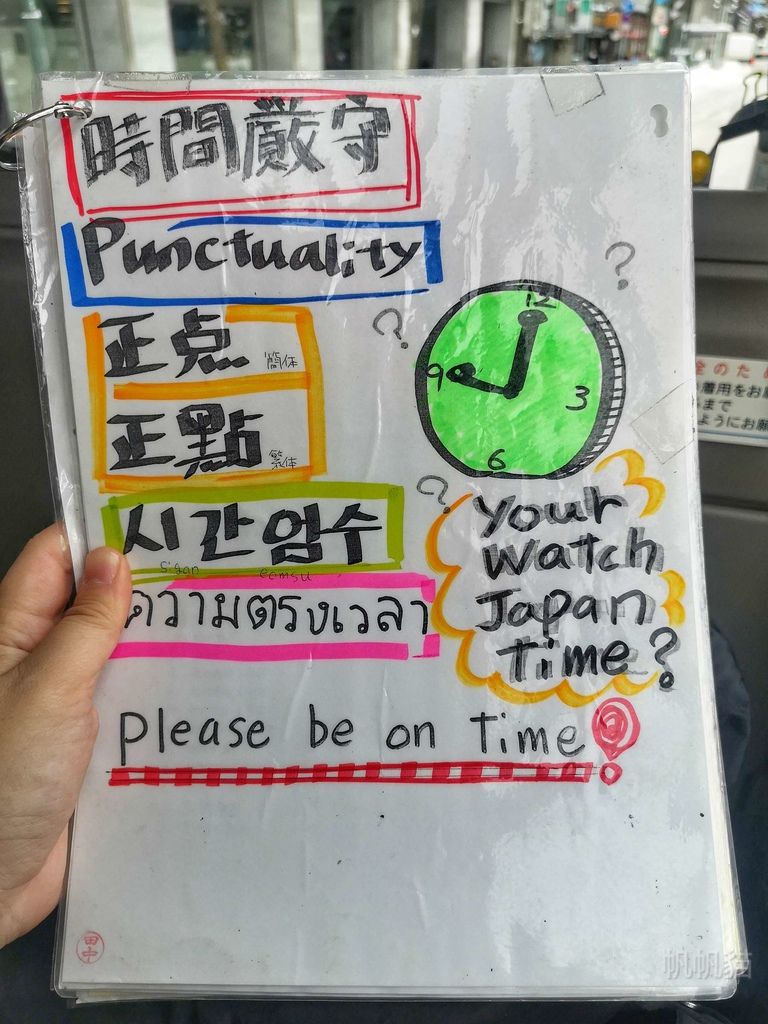 時間厳守
Punctuality
正点 簡体
正點 繁体
시간 엄수
sigan eomsu
ความตรงเวลา
? ? ?
12
9 3
6
Your
Watch
Japan
Time?
please be on Time!
田中
全のため
着用をお願
まで
ようにお願
帆帆貓